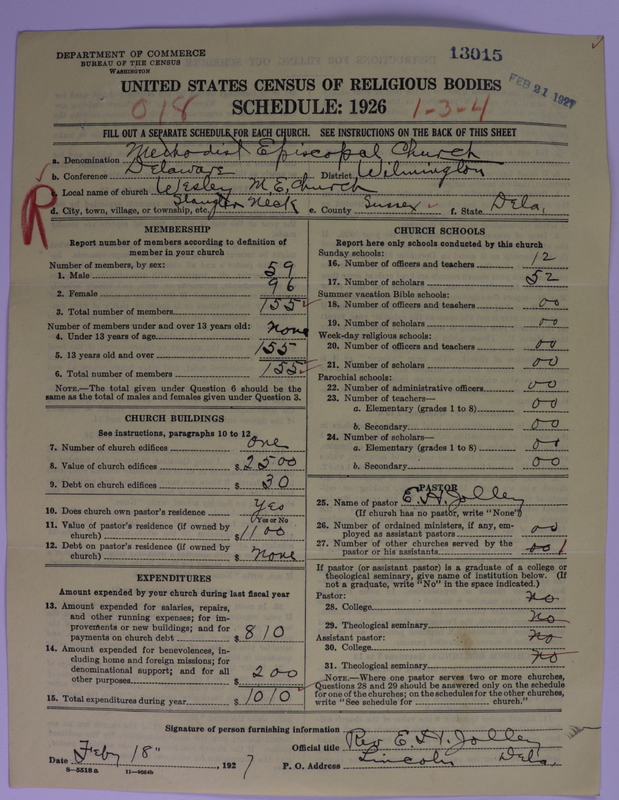 DEPARTMENT OF COMMERCE
BUREAU OF THE CENSUS
WASHINGTON
13015
UNITED STATES CENSUS OF RELIGIOUS BODIES
FEB 21 1927
SCHEDULE: 1926
018
1-3-4
FILL OUT A SEPARATE SCHEDULE FOR EACH CHURCH. SEE INSTRUCTIONS ON THE BACK OF THIS SHEET
R
a. Denomination Methodist Episcopal Church
b. Conference Delaware District Wilmington
c. Local name of church Wesley M.E. Church
d. City, town, village, or township, etc. Slaughter Neck e. County Sussex f. State Dela,
MEMBERSHIP
Report number of members according to definition of
member in your church
Number of members, by sex:
1. Male 59
2. Female 96
3. Total number of members 155
Number of members under and over 13 years old:
4. Under 13 years of age none
5. 13 years old and over 155
6. Total number of members 155
NOTE.—The total given under Question 6 should be the
same as the total of males and females given under Question 3.
CHURCH BUILDINGS
See instructions, paragraphs 10 to 12
7. Number of church edifices one
8. Value of church edifices $ 2500
9. Debt on church edifices $ 30
10. Does church own pastor's residence Yes
(Yes or No)
11. Value of pastor's residence (if owned by
church) $ 1100
12. Debt on pastor's residence (if owned by
church) $ none
EXPENDITURES
Amount expended by your church during last fiscal year
13. Amount expended for salaries, repairs,
and other running expenses; for im-
provements or new buildings; and for
payments on church debt $ 810
14. Amount expended for benevolences, in-
cluding home and foreign missions; for
denominational support; and for all
other purposes $ 200
15. Total expenditures during year $ 1010
CHURCH SCHOOLS
Report here only schools conducted by this church
Sunday schools:
16. Number of officers and teachers 12
17. Number of scholars 52
Summer vacation Bible schools:
18. Number of officers and teachers 00
19. Number of scholars 00
Week-day religious schools:
20. Number of officers and teachers 00
21. Number of scholars 00
Parochial schools:
22. Number of administrative officers 00
23. Number of teachers—
a. Elementary (grades 1 to 8) 00
b. Secondary 00
24. Number of scholars—
a. Elementary (grades 1 to 8) 00
b. Secondary 00
PASTOR
25. Name of pastor E. H. Jolley
(If church has no pastor, write "None")
26. Number of ordained ministers, if any, em-
ployed as assistant pastors 00
27. Number of other churches served by the
pastor or his assistants 00 1
If pastor (or assistant pastor) is a graduate of a college or
theological seminary, give name of institution below. (If
not a graduate, write "No" in the space indicated.)
Pastor:
28. College no
29. Theological seminary no
Assistant pastor:
30. College no
31. Theological seminary no
NOTE.—Where one pastor serves two or more churches,
Questions 28 and 29 should be answered only on the schedule
for one of the churches; on the schedules for the other churches,
write "See schedule for church."
Signature of person furnishing information Rev E. H. Jolley
Official title
Date Feby 18" , 1927 P. O. Address Lincoln Dela,
8—5518a 11—9064b